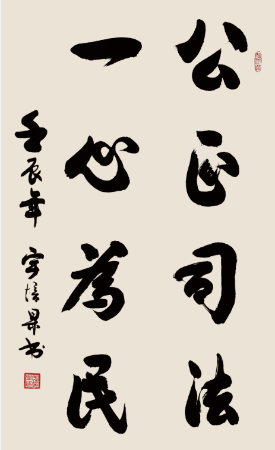 公正司法
一心為民
壬辰年 宗培昇书